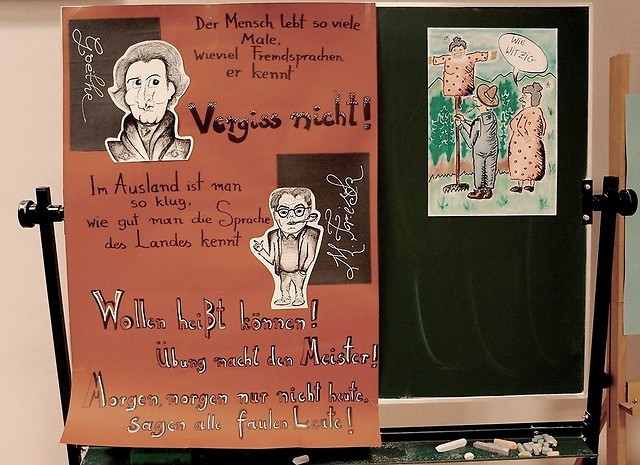 Goethe
Der Mensch lebt so viele
Male,
wieviel Fremdsprachen
er kennt
Vergiss nicht!
Im Ausland ist man
so klug,
wie gut man die Sprache
des Landes kennt
M. Frisch
Wollen heißt können!
Übung macht den Meister!
Morgen, morgen nur nicht heute,
sagen alle faulen Leute!
WIE
WITZIG